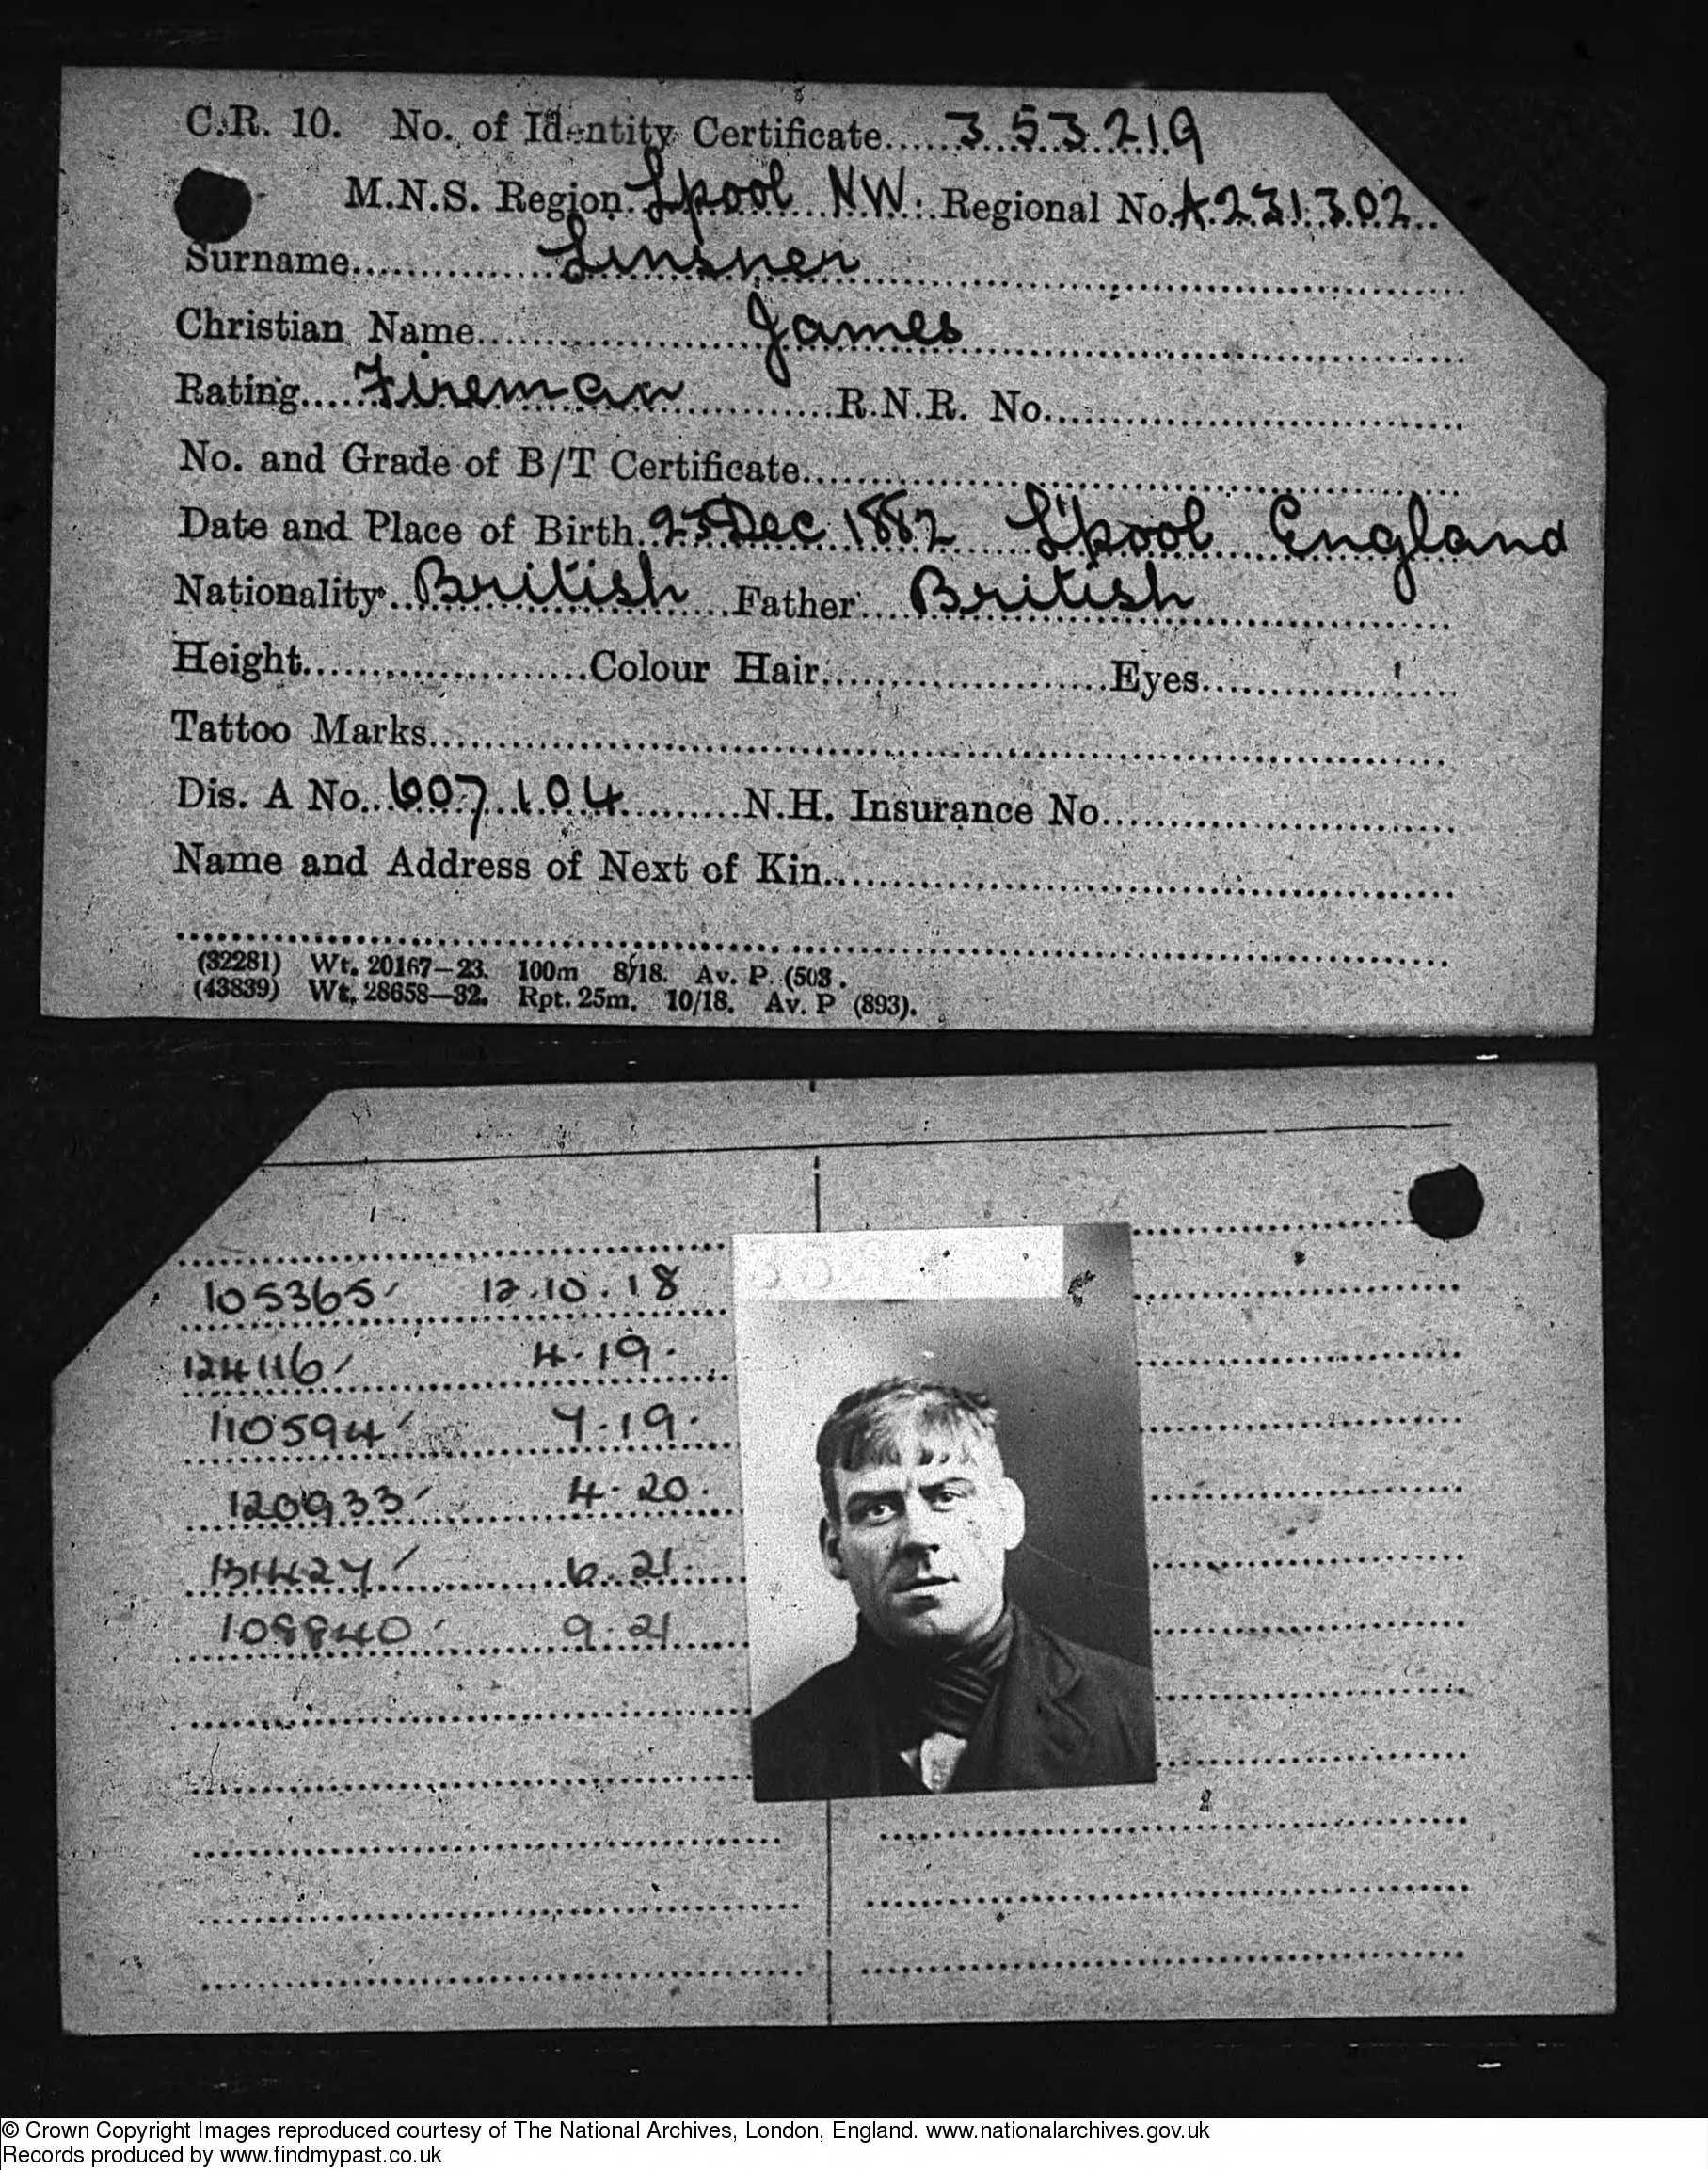 C.R. 10. No. of Identity Certificate......353219
M.N.S. Region. L'pool N.W. Regional No. A.231302
Surname................Linsner
Christian Name....................James
Rating.....Fireman............R.N.R. No.
No. and Grade of B/T Certificate
Date and Place of Birth. 25 Dec 1882 L'pool England
Nationality British Father British
Height......................Colour Hair......................Eyes
Tattoo Marks
Dis. A No. 607104.........N.H. Insurance No.
Name and Address of Next of Kin
(32281) Wt. 20167—23. 100m 8/18. Av. P. (503.
(43839) Wt. 28658—32. Rpt. 25m. 10/18. Av. P (893).
105365 12.10.18
124116 4.19.
110594 7.19.
120933 4.20.
131427 6.21.
108840 9.21
© Crown Copyright Images reproduced courtesy of The National Archives, London, England. www.nationalarchives.gov.uk
Records produced by www.findmypast.co.uk